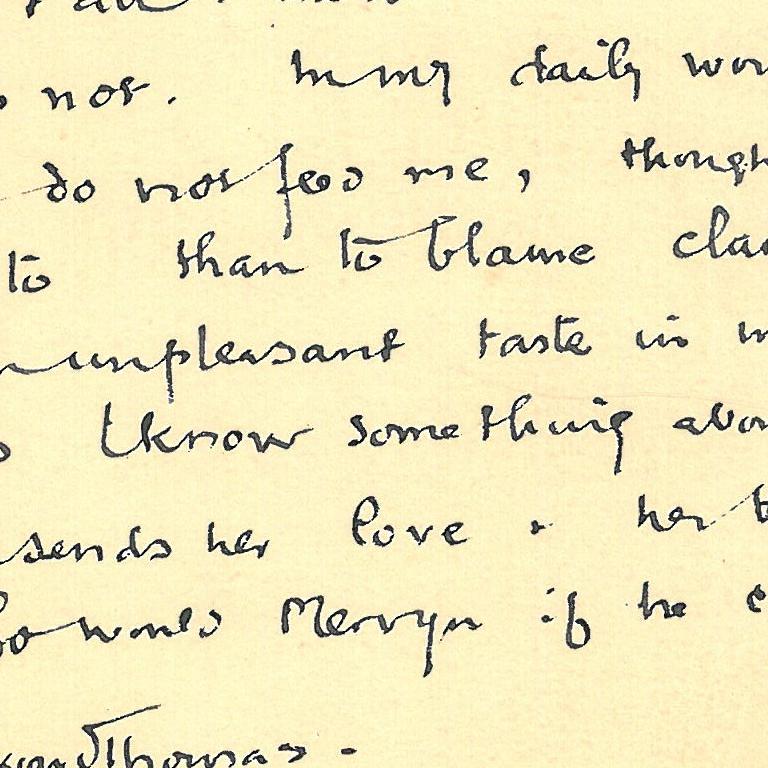 not. In my daily
do not feed me, though
to than to blame
unpleasant taste in
I know something
sends her love & her
would Mervyn if he
Thomas.